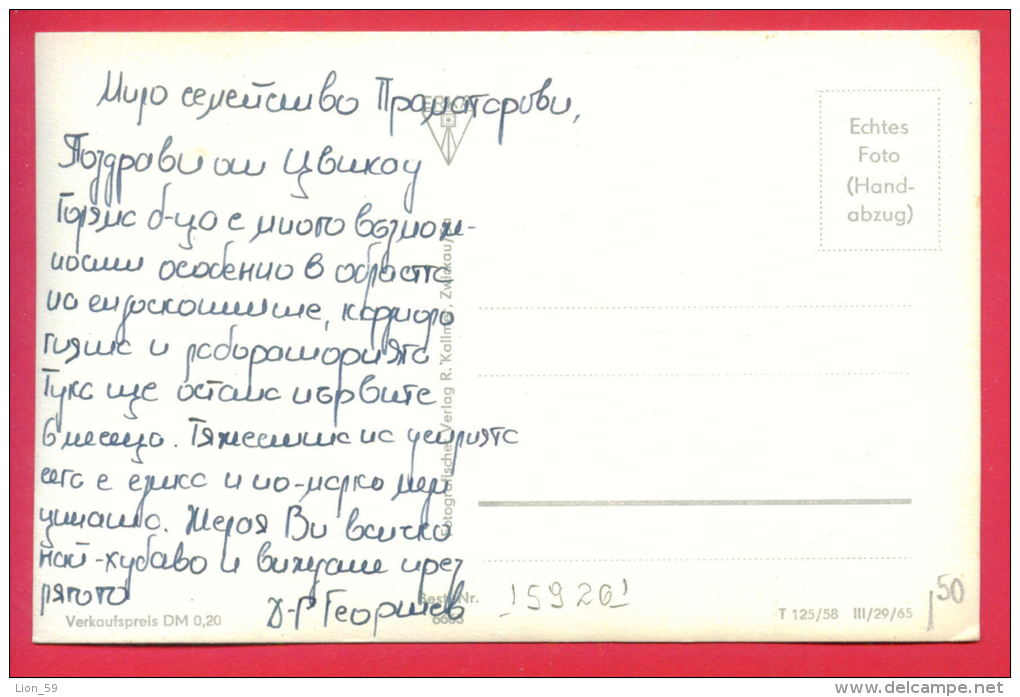 Мило семейство Праматарови,
Поздрави от Цвикау
Голяма б-ца с много възмож-
ности особенно в областта
на ендоскопиите, кардиоло
гията и лабораторията
Тука ще остана първите
6 месеца. Тяжестта на усилията
сега е езика и по-малко меди
цината. Желая Ви всичко
най-хубаво и виждане през
лятото
Д-р Георгиев
ERKA
Echtes
Foto
(Hand-
abzug)
Fotografischer Verlag R. Kallmer, Zwickau/Sa
Verkaufspreis DM 0,20
Best.-Nr.
6603
159261
50
T 125/58 III/29/65
Lion_59
www.delcampe.net